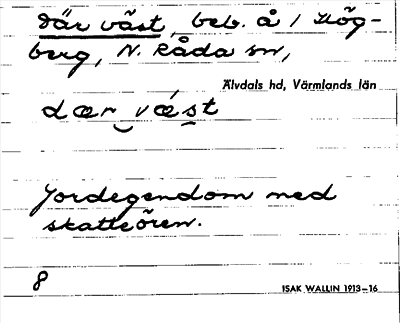 Där väst, beb. å / Hög-
berg, N. Råda sn,
Älvdals hd, Värmlands län
dær væst
Jordegendom med
skatteören.
8
ISAK WALLIN 1913–16